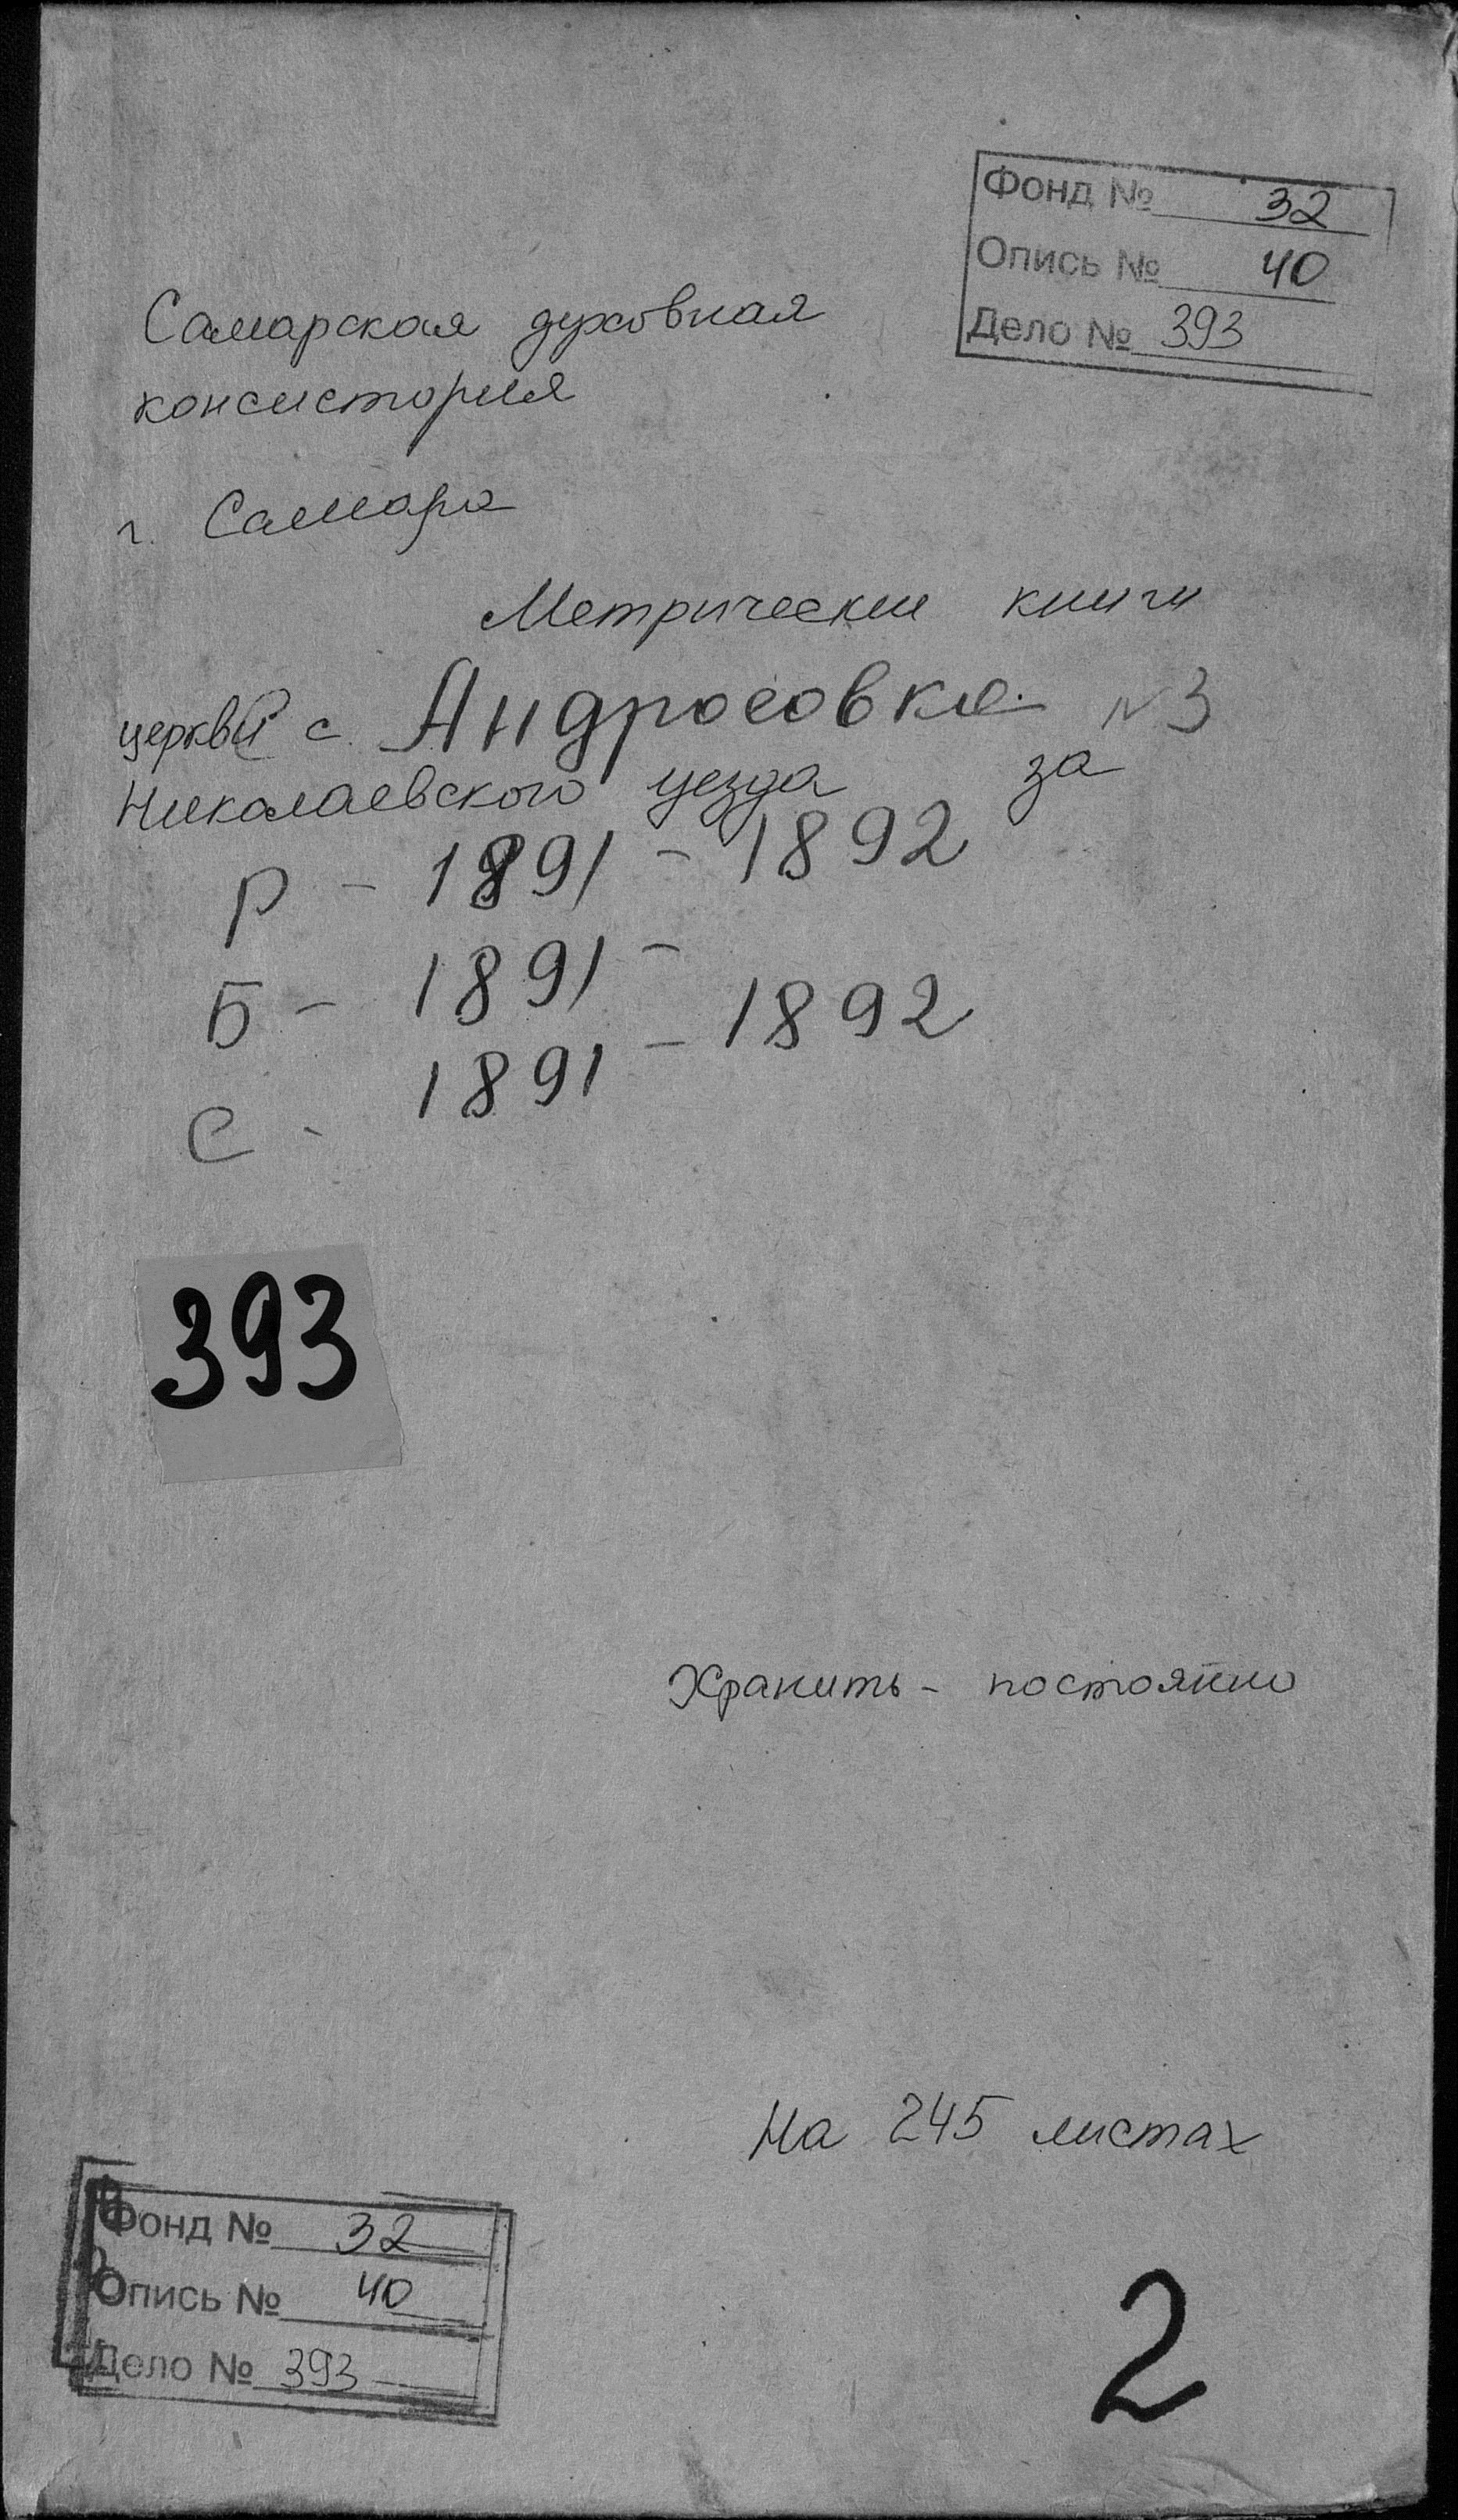 Фонд № 32
Опись № 40
Дело № 393
Самарская духовная
консистория
г. Самара
Метрические книги
церкви с. Андросовка №3
Николаевского уезда за
Р - 1891 - 1892
Б - 1891 -
С - 1891 - 1892
393
Хранить - постоянно
На 245 листах
Фонд № 32
Опись № 40
Дело № 393
2